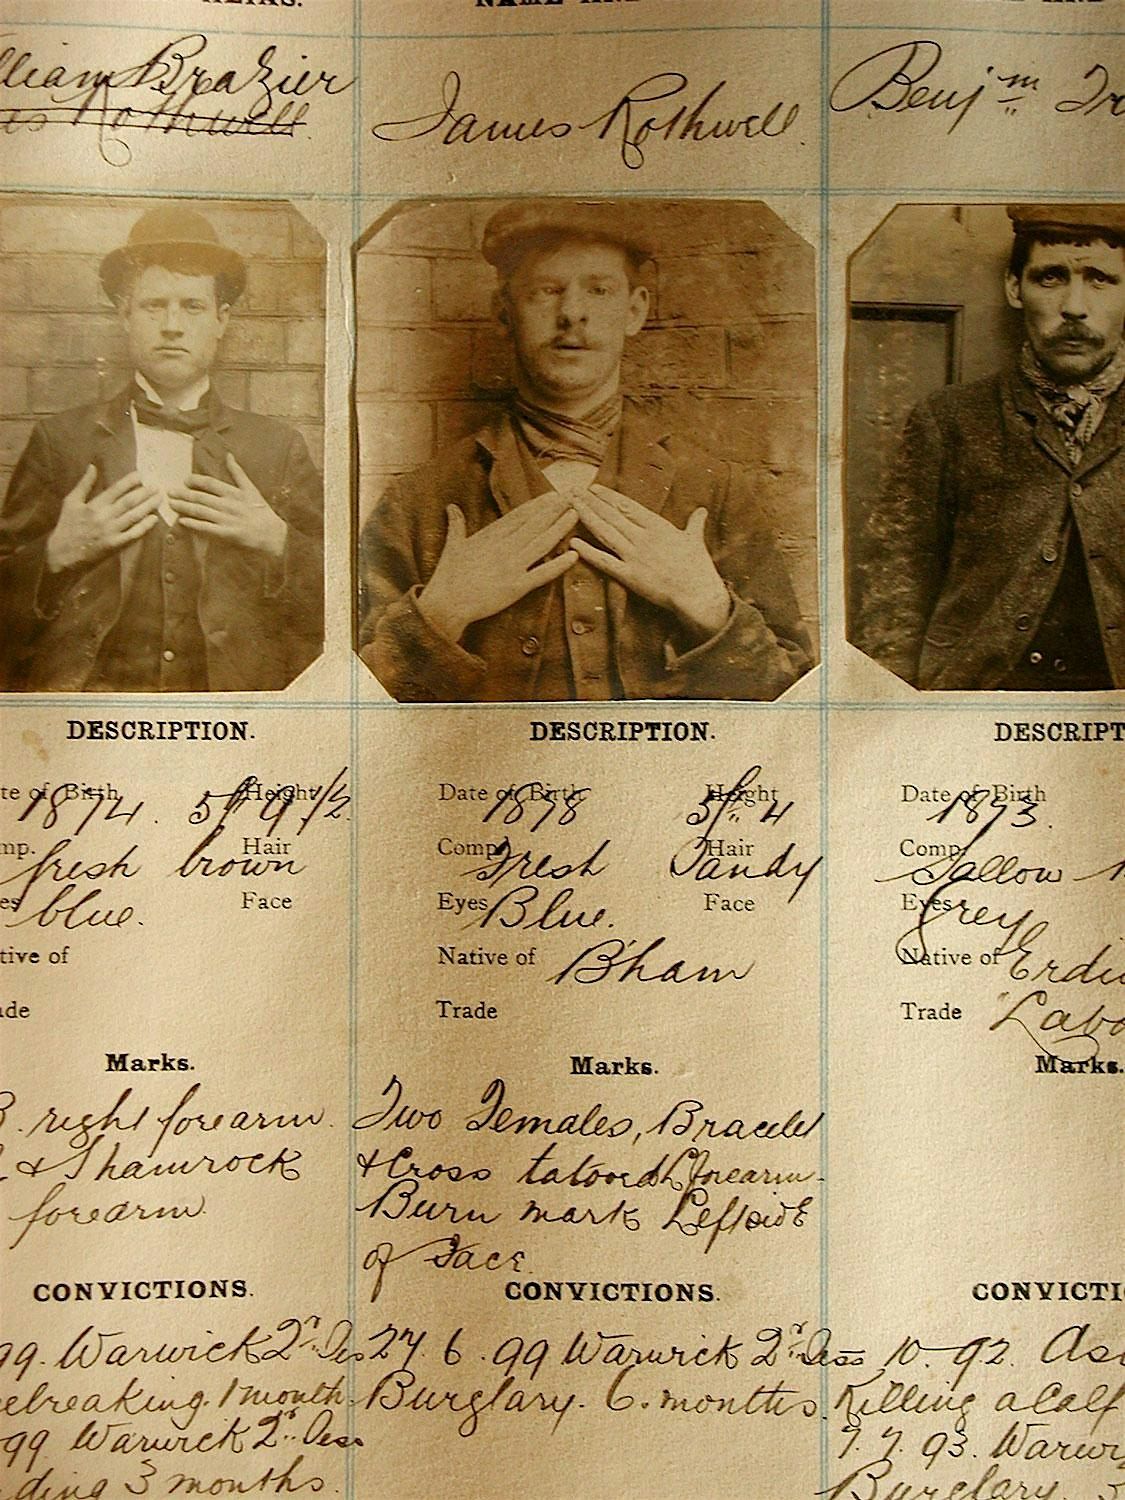 ALIAS.
William Brazier
Rothwell
te of Birth 1874. Height 5ft 9 1/2.
mp. fresh Hair brown
es blue. Face
tive of
ade
DESCRIPTION.
Marks.
B. right forearm.
& Shamrock
forearm.
CONVICTIONS.
99. Warwick 2nd Sess
ebreaking. 1 month.
99 Warwick 2nd Sess
ding 3 months.
NAME AND
James Rothwell.
DESCRIPTION.
Date of Birth 1878 Height 5ft. 4
Comp. Fresh Hair Sandy
Eyes Blue. Face
Native of B'ham
Trade
Marks.
Two Females, Bracelet
& Cross tatooed L forearm.
Burn mark Left side
of Face.
CONVICTIONS.
27. 6. 99 Warwick 2nd Sess
Burglary. 6. months.
Benjm Tr
DESCRIPT
Date of Birth 1873.
Comp. Sallow
Eyes Grey
Native of Erdi
Trade Labo
Marks.
CONVICTI
10. 92. Ass
Killing a Calf
7. 7. 93. Warwi
Burglary.